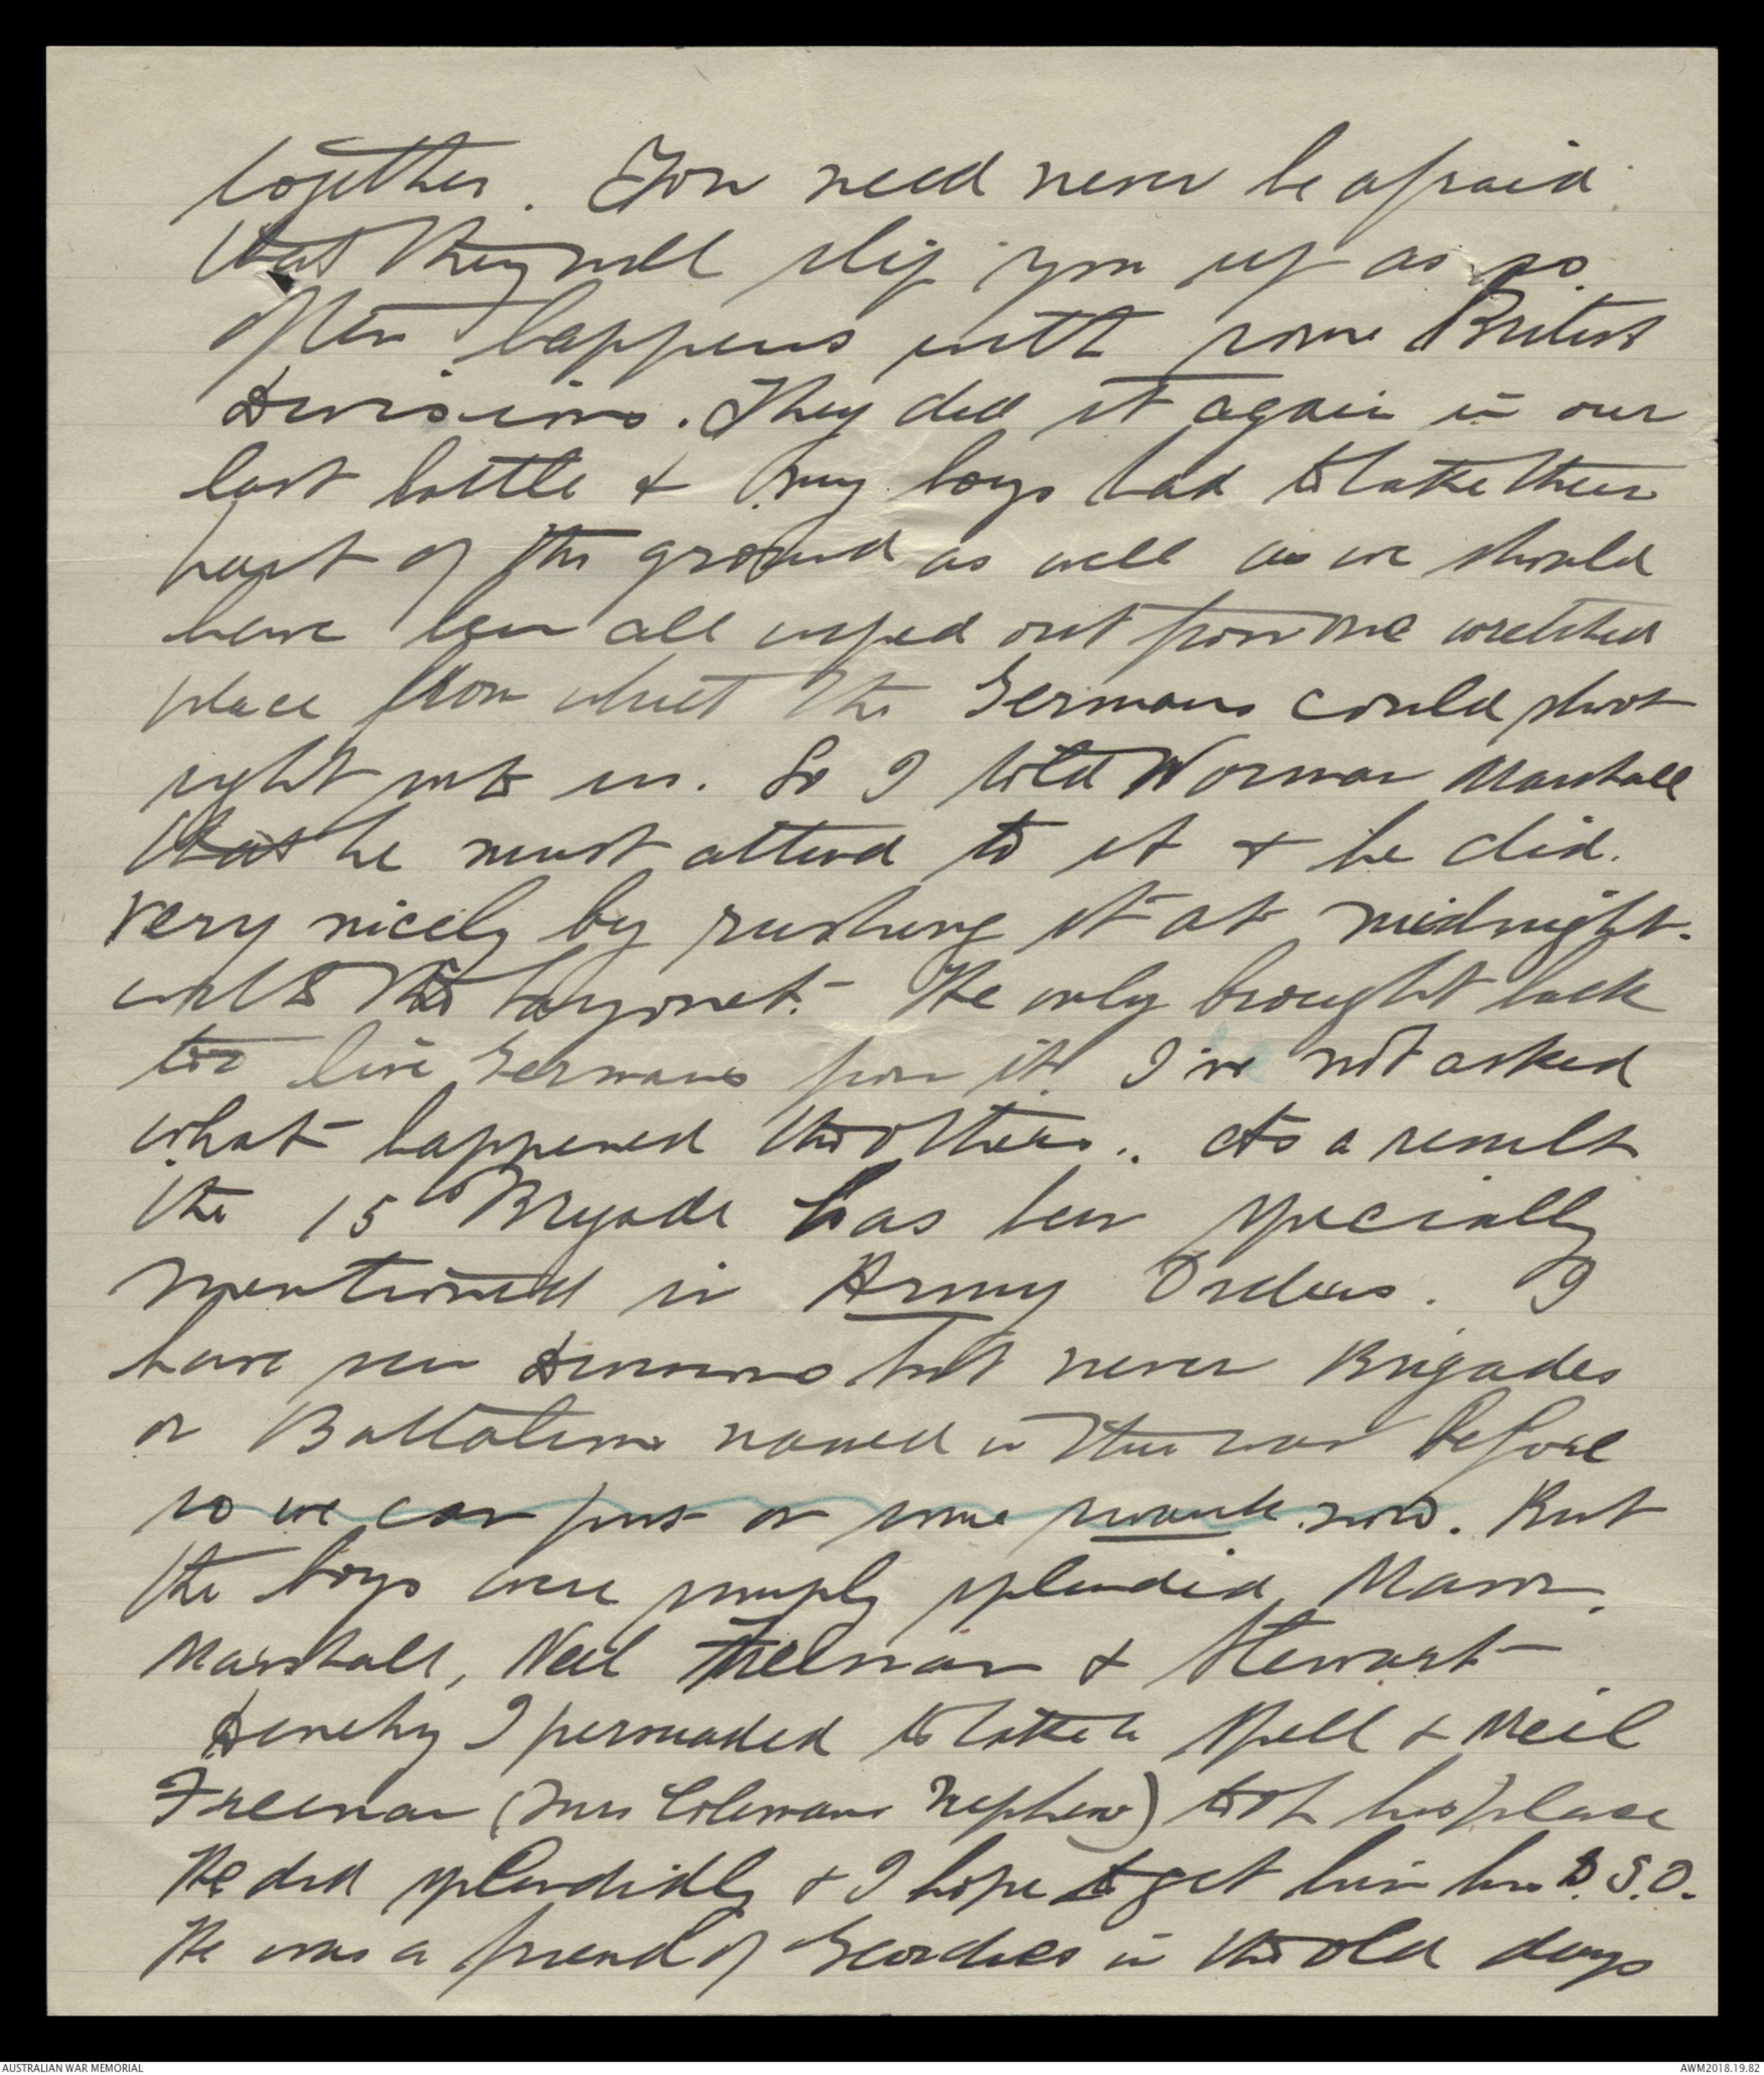 together. You need never be afraid
that they will slip you up as so
often happens with some British
Divisions. They did it again in our
last battle & my boys had to take their
part of the ground as well as we should
have been all wiped out from one wretched
place from which the Germans could shoot
right into us. So I told Norman Marshall
that he must attend to it & he did.
very nicely by rushing it at midnight.
with the bayonet. He only brought back
two live Germans from it. I've not asked
what happened the others.. As a result
the 15th Brigade has been specially
mentioned in Army Orders. I
have seen Divisions but never Brigades
or Battalions named in this war before
so we can put on some swank now. But
the boys were simply splendid,
Marshall, Neil Freeman & Stewart
Denehy I persuaded to take a spell & Neil
Freeman (Mrs Colemans Nephew) took his place
He did splendidly & I hope to get him his D.S.O.
He was a friend of Geordies in the old days
AUSTRALIAN WAR MEMORIAL
AWM2018.19.82